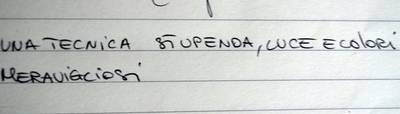 UNA TECNICA STUPENDA, LUCE E COLORI
MERAVIGLIOSI